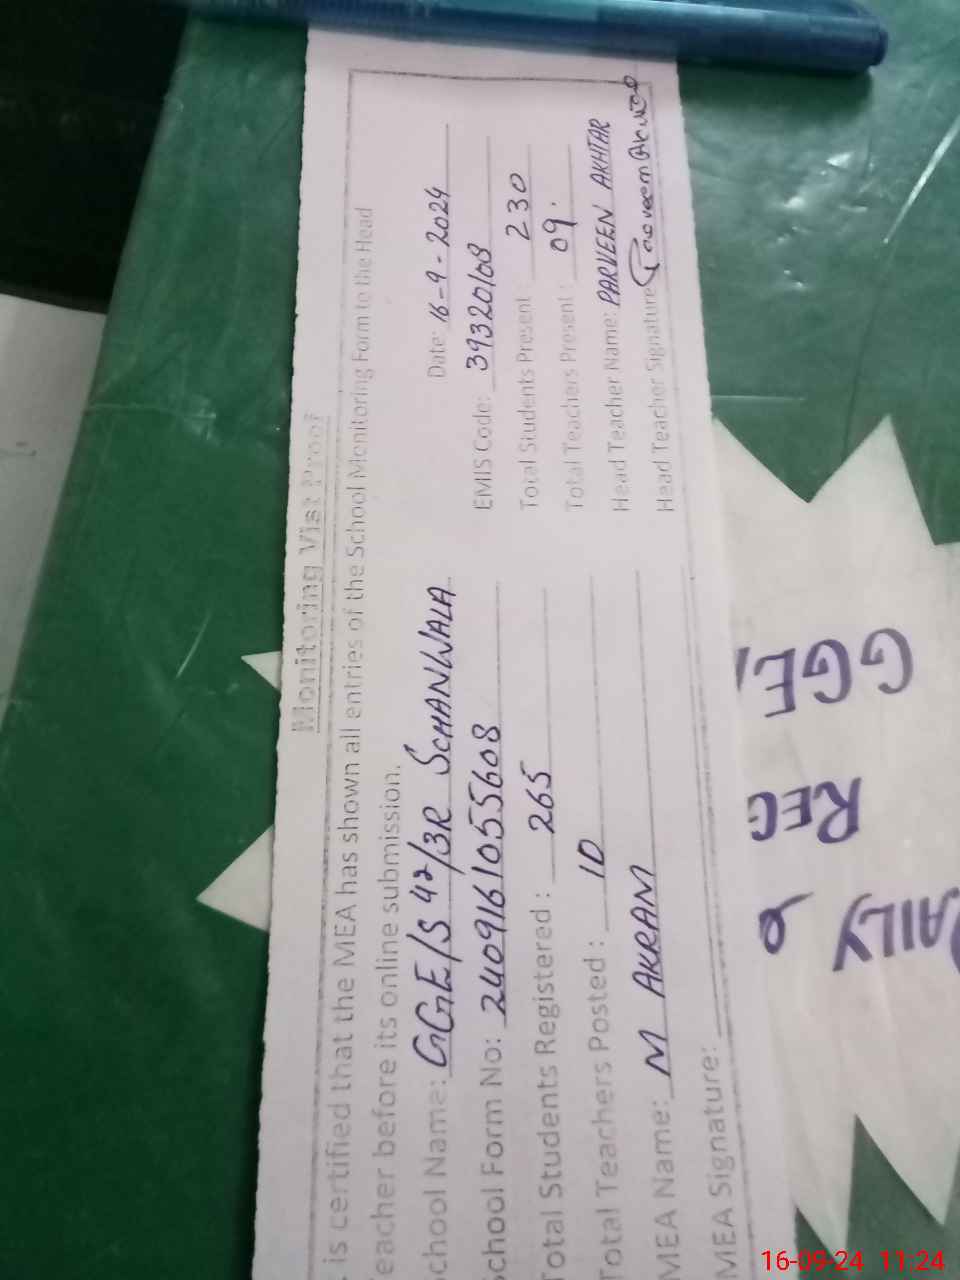 Monitoring Vist Proof
is certified that the MEA has shown all entries of the School Monitoring Form to the Head
eacher before its online submission.
chool Name: GGE/S 42/3R SCHANWALA Date: 16-9-2024
chool Form No: 2409161055608 EMIS Code: 39320108
Total Students Registered : 265 Total Students Present : 230
Total Teachers Posted : 10 Total Teachers Present : 09.
MEA Name: M AKRAM Head Teacher Name: PARVEEN AKHTAR
MEA Signature: Head Teacher Signature
GGE/
REG
AILY
16-09-24 11:24